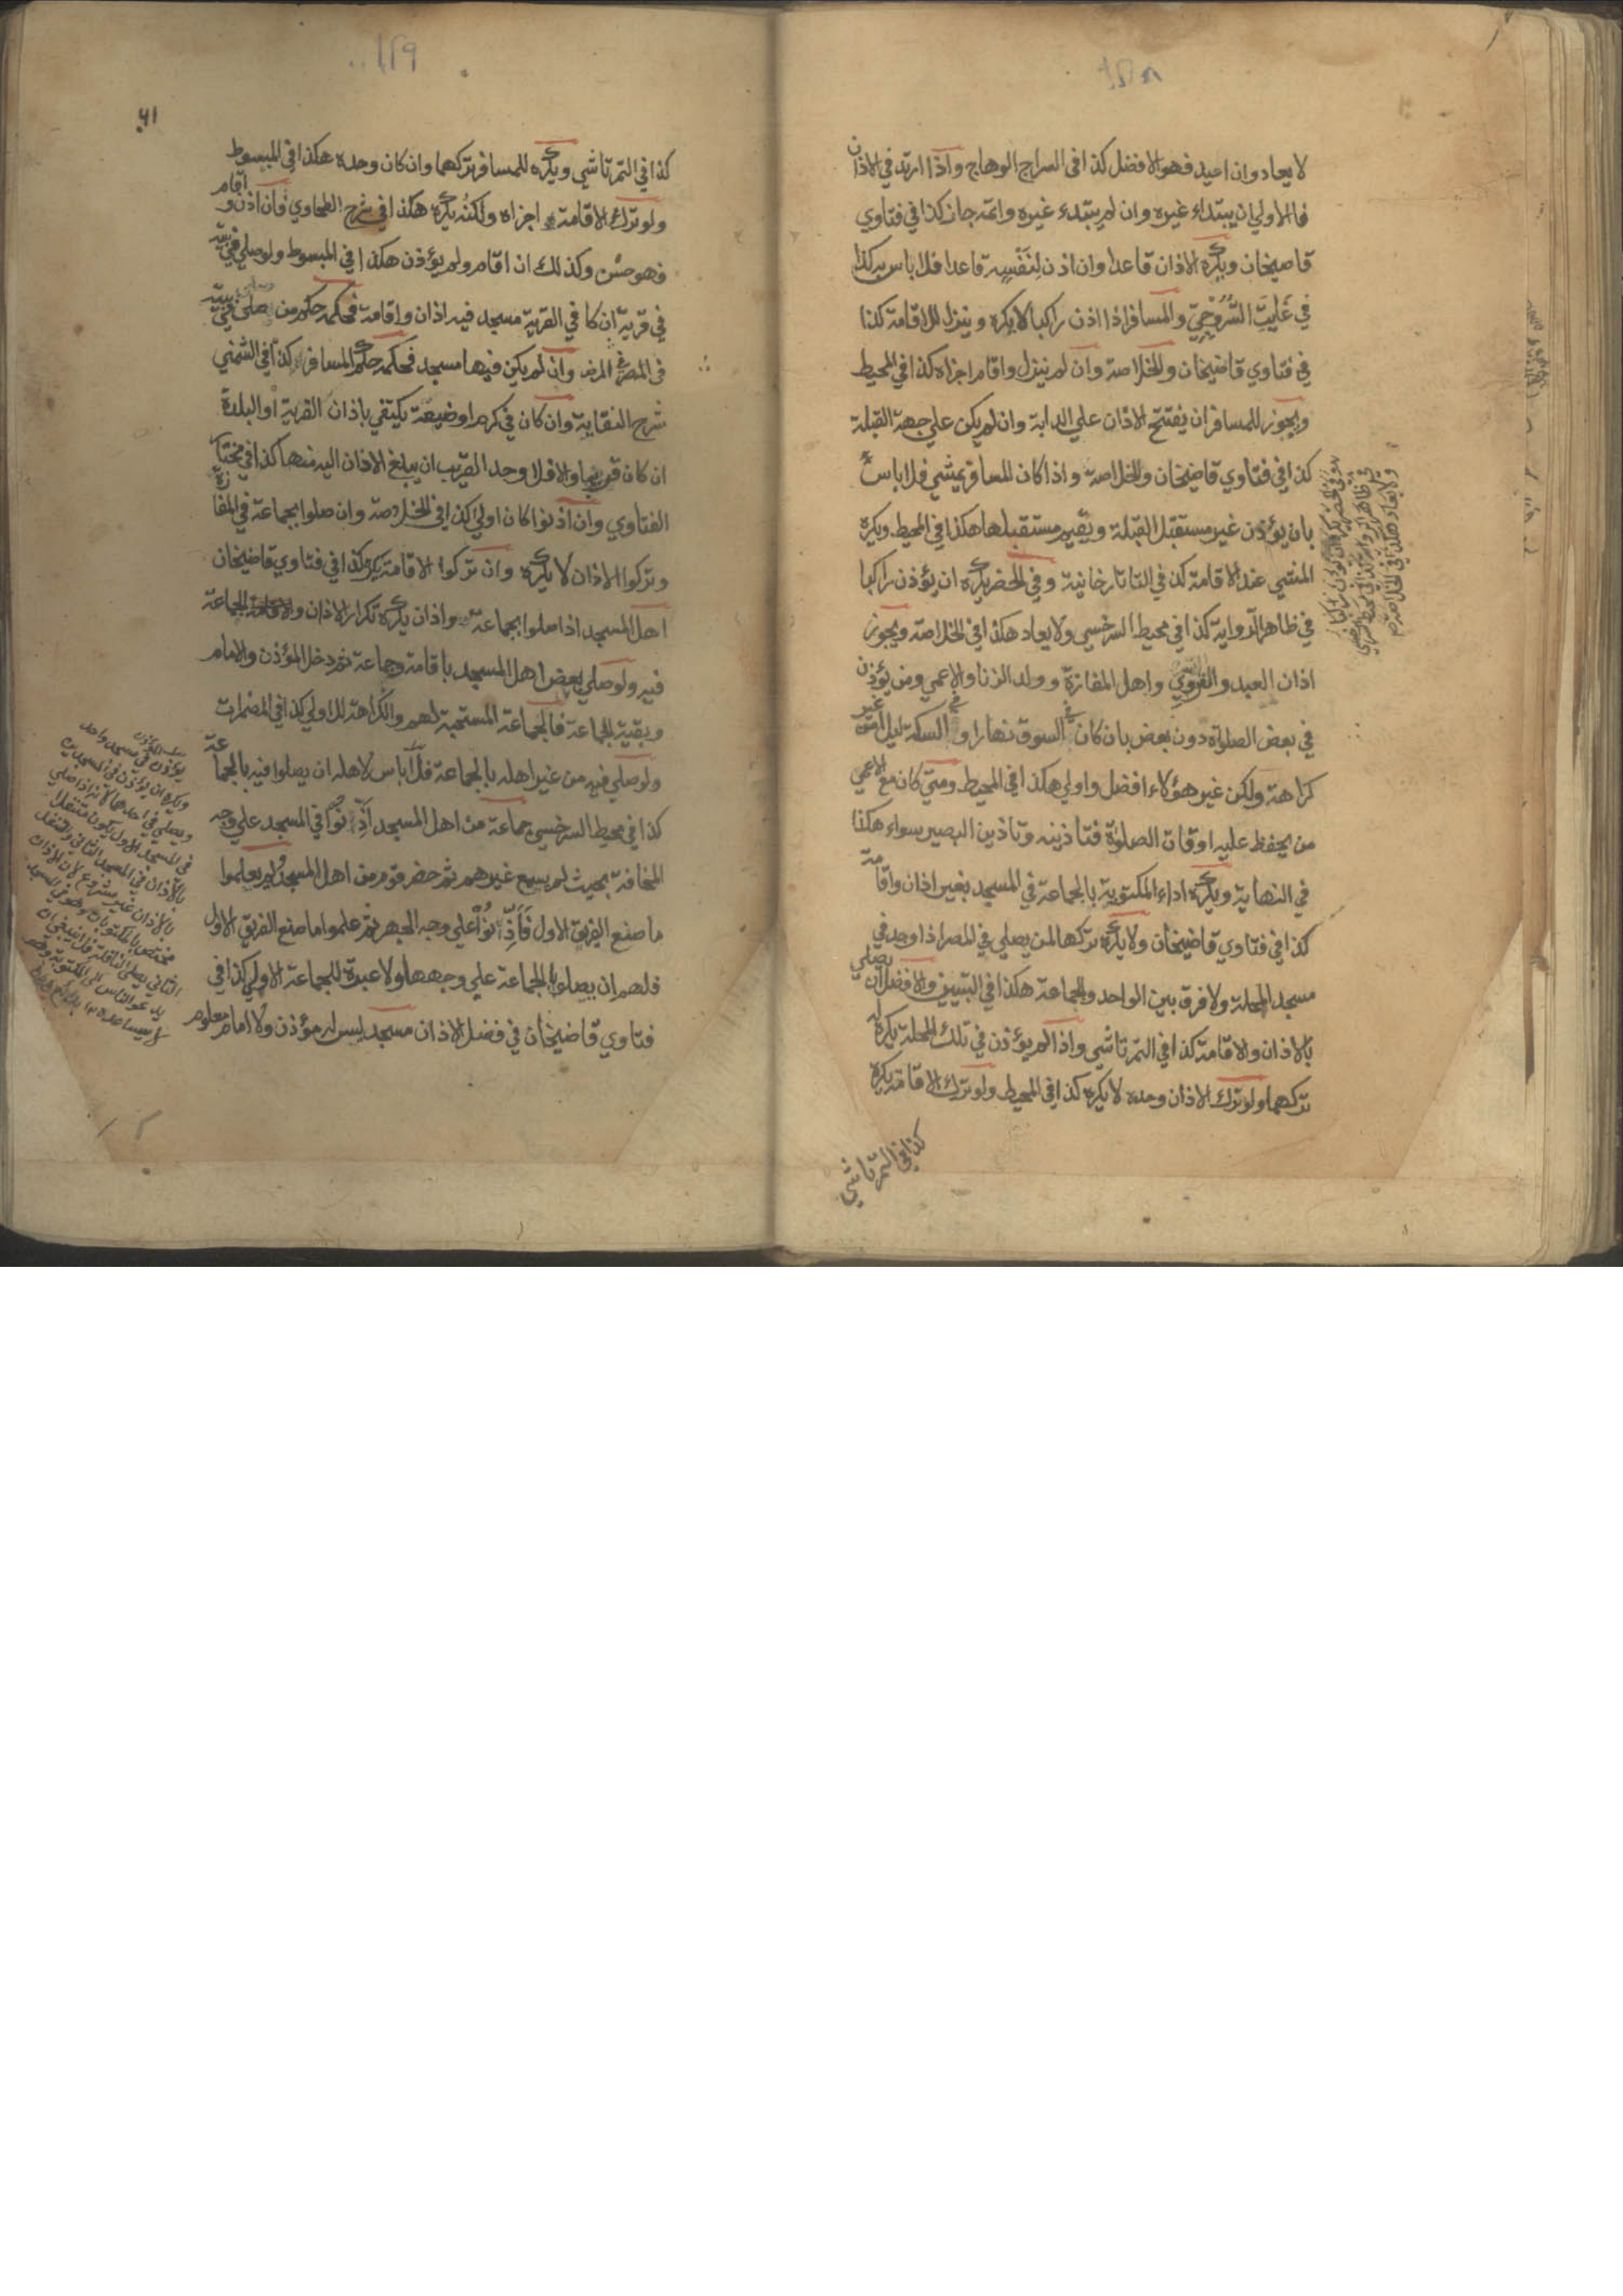 لا يعاد وان اعيد فهو الافضل كذا فى السراج الوهاج واذا ارتد في الاذان
فالاولي ان يبتداء غيره وان لم يبتدء غيره واتمه جاز كذا في فتاوي
قاضيخان ويكره الاذان قاعدا وان اذن لنفسه قاعدا فلا باس به كذا
في غايت السروجي والمسافر اذا اذن راكبا لا يكره وينزل للاقامة كذا
في فتاوي قاضيخان والخلاصة وان لم ينزل واقام اجزاه كذا في المحيط
ويجوز للمسافر ان يفتتح الاذان علي الدابة وان لم يكن علي جهة القبلة
كذا في فتاوي قاضيخان والخلاصة واذا كان المسافر يمشي فلا باس
بان يؤذن غير مستقبل القبلة ويقيم مستقبلها هكذا في المحيط ويكره
المشي عند الاقامة كذا في التاتارخانية وفي الحضر يكره ان يؤذن راكبا
في ظاهر الرواية كذا في محيط السرخسي ولا يعاد هكذا في الخلاصة ويجوز
اذان العبد والقروي واهل المفازة وولد الزنا والاعمي ومن يؤذن
في بعض الصلواة دون بعض بان كان في السوق نهارا وفي السكة ليلا من غير
كراهة ولكن غير هؤلاء افضل واولي هكذا في المحيط ومتي كان مع الاعمي
من يحفظ عليه اوقات الصلوة فتأذينه وتاذين البصير سواء هكذا
في النهاية ويكره اداء المكتوبة بالجماعة في المسجد بغير اذان واقامة
كذا في فتاوي قاضيخان ولا يكره تركهما لمن يصلي في المصر اذا وجد في
مسجد المحلة ولا فرق بين الواحد والجماعة هكذا في التبيين والافضل ان يصلي
بالاذان والاقامة كذا في التمرتاشي واذا لم يؤذن في تلك المحلة يكره له
تركهما ولو ترك الاذان وحده لا يكره كذا في المحيط ولو ترك الاقامة يكره
كذا في التمرتاشي
وفي الحضر يكره ان يؤذن راكبا
في ظاهر الرواية كذا في محيط السرخسي
ولا يعاد هكذا في الخلاصة
٦١
كذا في التمرتاشي ويكره للمسافر تركهما وان كان وحده هكذا في المبسوط
ولو ترك الاقامة اجزاه ولكنه يكره هكذا في شرح الطحاوي فان اذن واقام
فهو حسن وكذلك ان اقام ولم يؤذن هكذا في المبسوط ولو صلي في بيته
في قرية ان كا في القرية مسجد فيه اذان واقامة فحكمه حكم من صلي في بيته
في المصر وان لم يكن فيها مسجد فحكمه حكم المسافر كذا في الشمني
شرح النقاية وان كان في كرم او ضيعة يكتفي باذان القرية او البلدة
ان كان قريبا والا فلا وحد القريب ان يبلغ الاذان اليه منها كذا في مختار
الفتاوي وان اذنوا كان اولي كذا في الخلاصة وان صلوا بجماعة في المفازة
وتركوا الاذان لا يكره وان تركوا الاقامة يكره كذا في فتاوي قاضيخان
اهل المسجد اذا صلوا بجماعة واذان يكره تكرار الاذان والجماعة
فيه ولو صلي بعض اهل المسجد باقامة وجماعة ثم دخل المؤذن والامام
وبقية الجماعة فالجماعة المستحبة لهم والكراهة للاولي كذا في المضمرات
ولو صلي فيه من غير اهله بالجماعة فلا باس لاهله ان يصلوا فيه بالجماعة
كذا في محيط السرخسي جماعة من اهل المسجد اذنوا في المسجد علي وجه
المخافتة بحيث لم يسمع غيرهم ثم حضر قوم من اهل المسجد ولم يعلموا
ما صنع الفريق الاول فاذنوا علي وجه الجهر ثم علموا ما صنع الفريق الاول
فلهم ان يصلوا بالجماعة علي وجهها ولا عبرة للجماعة الاولي كذا في
فتاوي قاضيخان في فضل الاذان مسجد ليس له مؤذن ولا امام معلوم
يؤذن في مسجد واحد
ويكره ان يؤذن في المسجدين
ويصلي في احدهما لانه اذا صلي
في المسجد الاول يكون متنفلا
بالاذان في المسجد الثاني والتنفل
بالاذان غير مشروع لان الاذان
مختص بالمكتوبات وهو في المسجد
الثاني يصلي النافلة فلا ينبغي ان
يدعو الناس الى المكتوبة وهو
لا يساعدهم